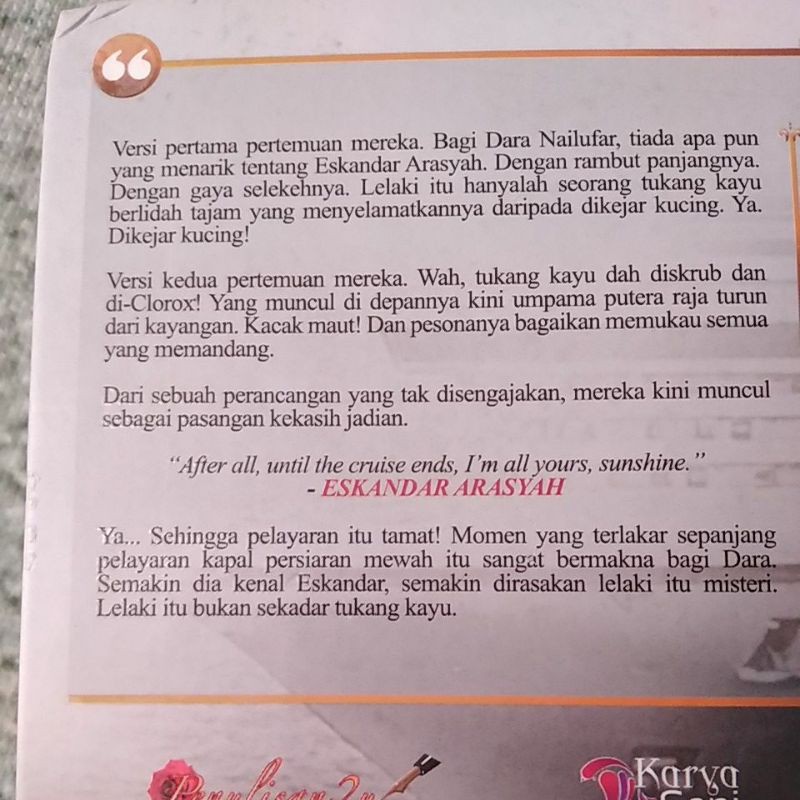 Versi pertama pertemuan mereka. Bagi Dara Nailufar, tiada apa pun
yang menarik tentang Eskandar Arasyah. Dengan rambut panjangnya.
Dengan gaya selekehnya. Lelaki itu hanyalah seorang tukang kayu
berlidah tajam yang menyelamatkannya daripada dikejar kucing. Ya.
Dikejar kucing!
Versi kedua pertemuan mereka. Wah, tukang kayu dah diskrub dan
di-Clorox! Yang muncul di depannya kini umpama putera raja turun
dari kayangan. Kacak maut! Dan pesonanya bagaikan memukau semua
yang memandang.
Dari sebuah perancangan yang tak disengajakan, mereka kini muncul
sebagai pasangan kekasih jadian.
“After all, until the cruise ends, I’m all yours, sunshine.”
- ESKANDAR ARASYAH
Ya... Sehingga pelayaran itu tamat! Momen yang terlakar sepanjang
pelayaran kapal persiaran mewah itu sangat bermakna bagi Dara.
Semakin dia kenal Eskandar, semakin dirasakan lelaki itu misteri.
Lelaki itu bukan sekadar tukang kayu.
Penulisan2u
Karya